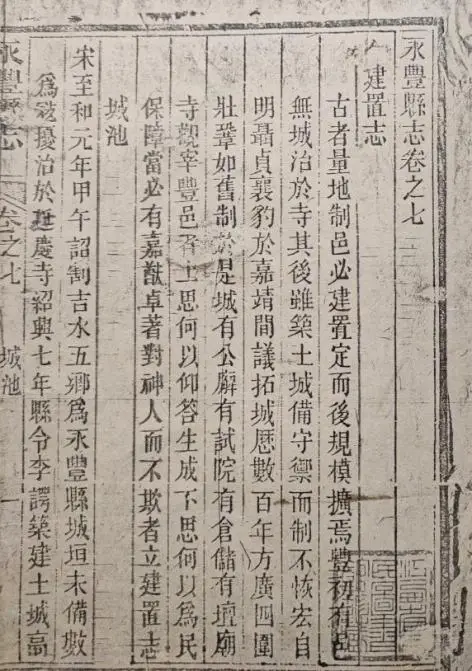 永豐縣志卷之七
建置志
古者量地制邑必建置定而後規模擴焉豐初有邑
無城治於寺其後雖築土城備守禦而制不恢宏自
明聶貞襄豹於嘉靖間議拓城歷數百年方廣四圍
壯鞏如舊制於是城有公廨有試院有倉儲有壇廟
寺觀宰豐邑者上思何以仰答生成下思何以為民
保障當必有嘉猷卓著對神人而不欺者立建置志
城池
宋至和元年甲午詔割吉水五鄉為永豐縣城垣未備數
為寇擾治於延慶寺紹興七年縣令李諤築建土城高
永豐縣志
卷之七
城池
一